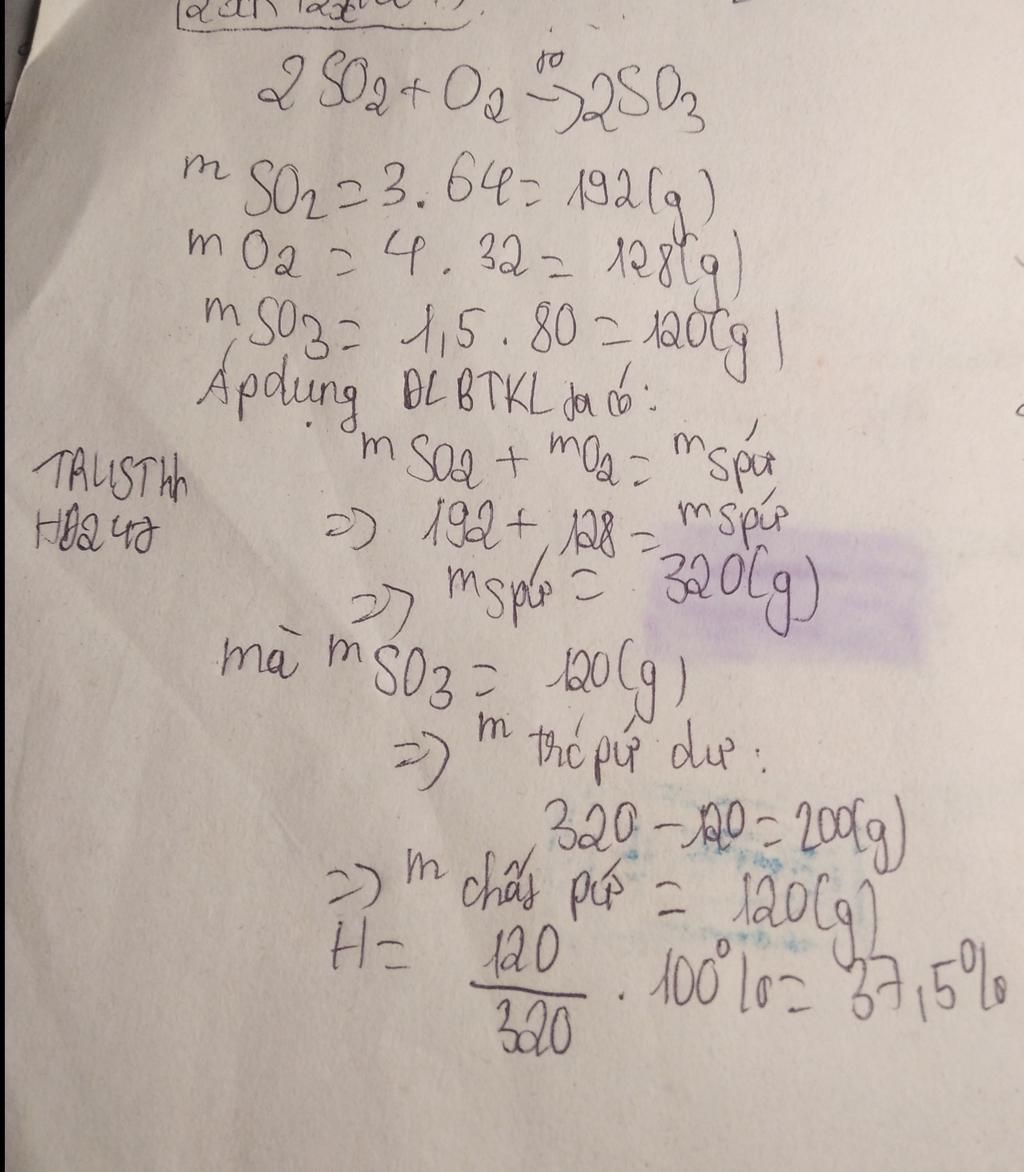 2SO2 + O2 t° → 2SO3
m SO2 = 3 . 64 = 192(g)
m O2 = 4 . 32 = 128(g)
m SO3 = 1,5 . 80 = 120(g)
Áp dụng ĐLBTKL ta có:
m SO2 + m O2 = m spứ
TRUSThh
=> 192 + 128 = m spứ
=> m spứ = 320(g)
mà m SO3 = 120(g)
=> m trc pứ dư :
320 - 120 = 200(g)
=> m chất pứ = 120(g)
H = 120/320 . 100% = 37,5%